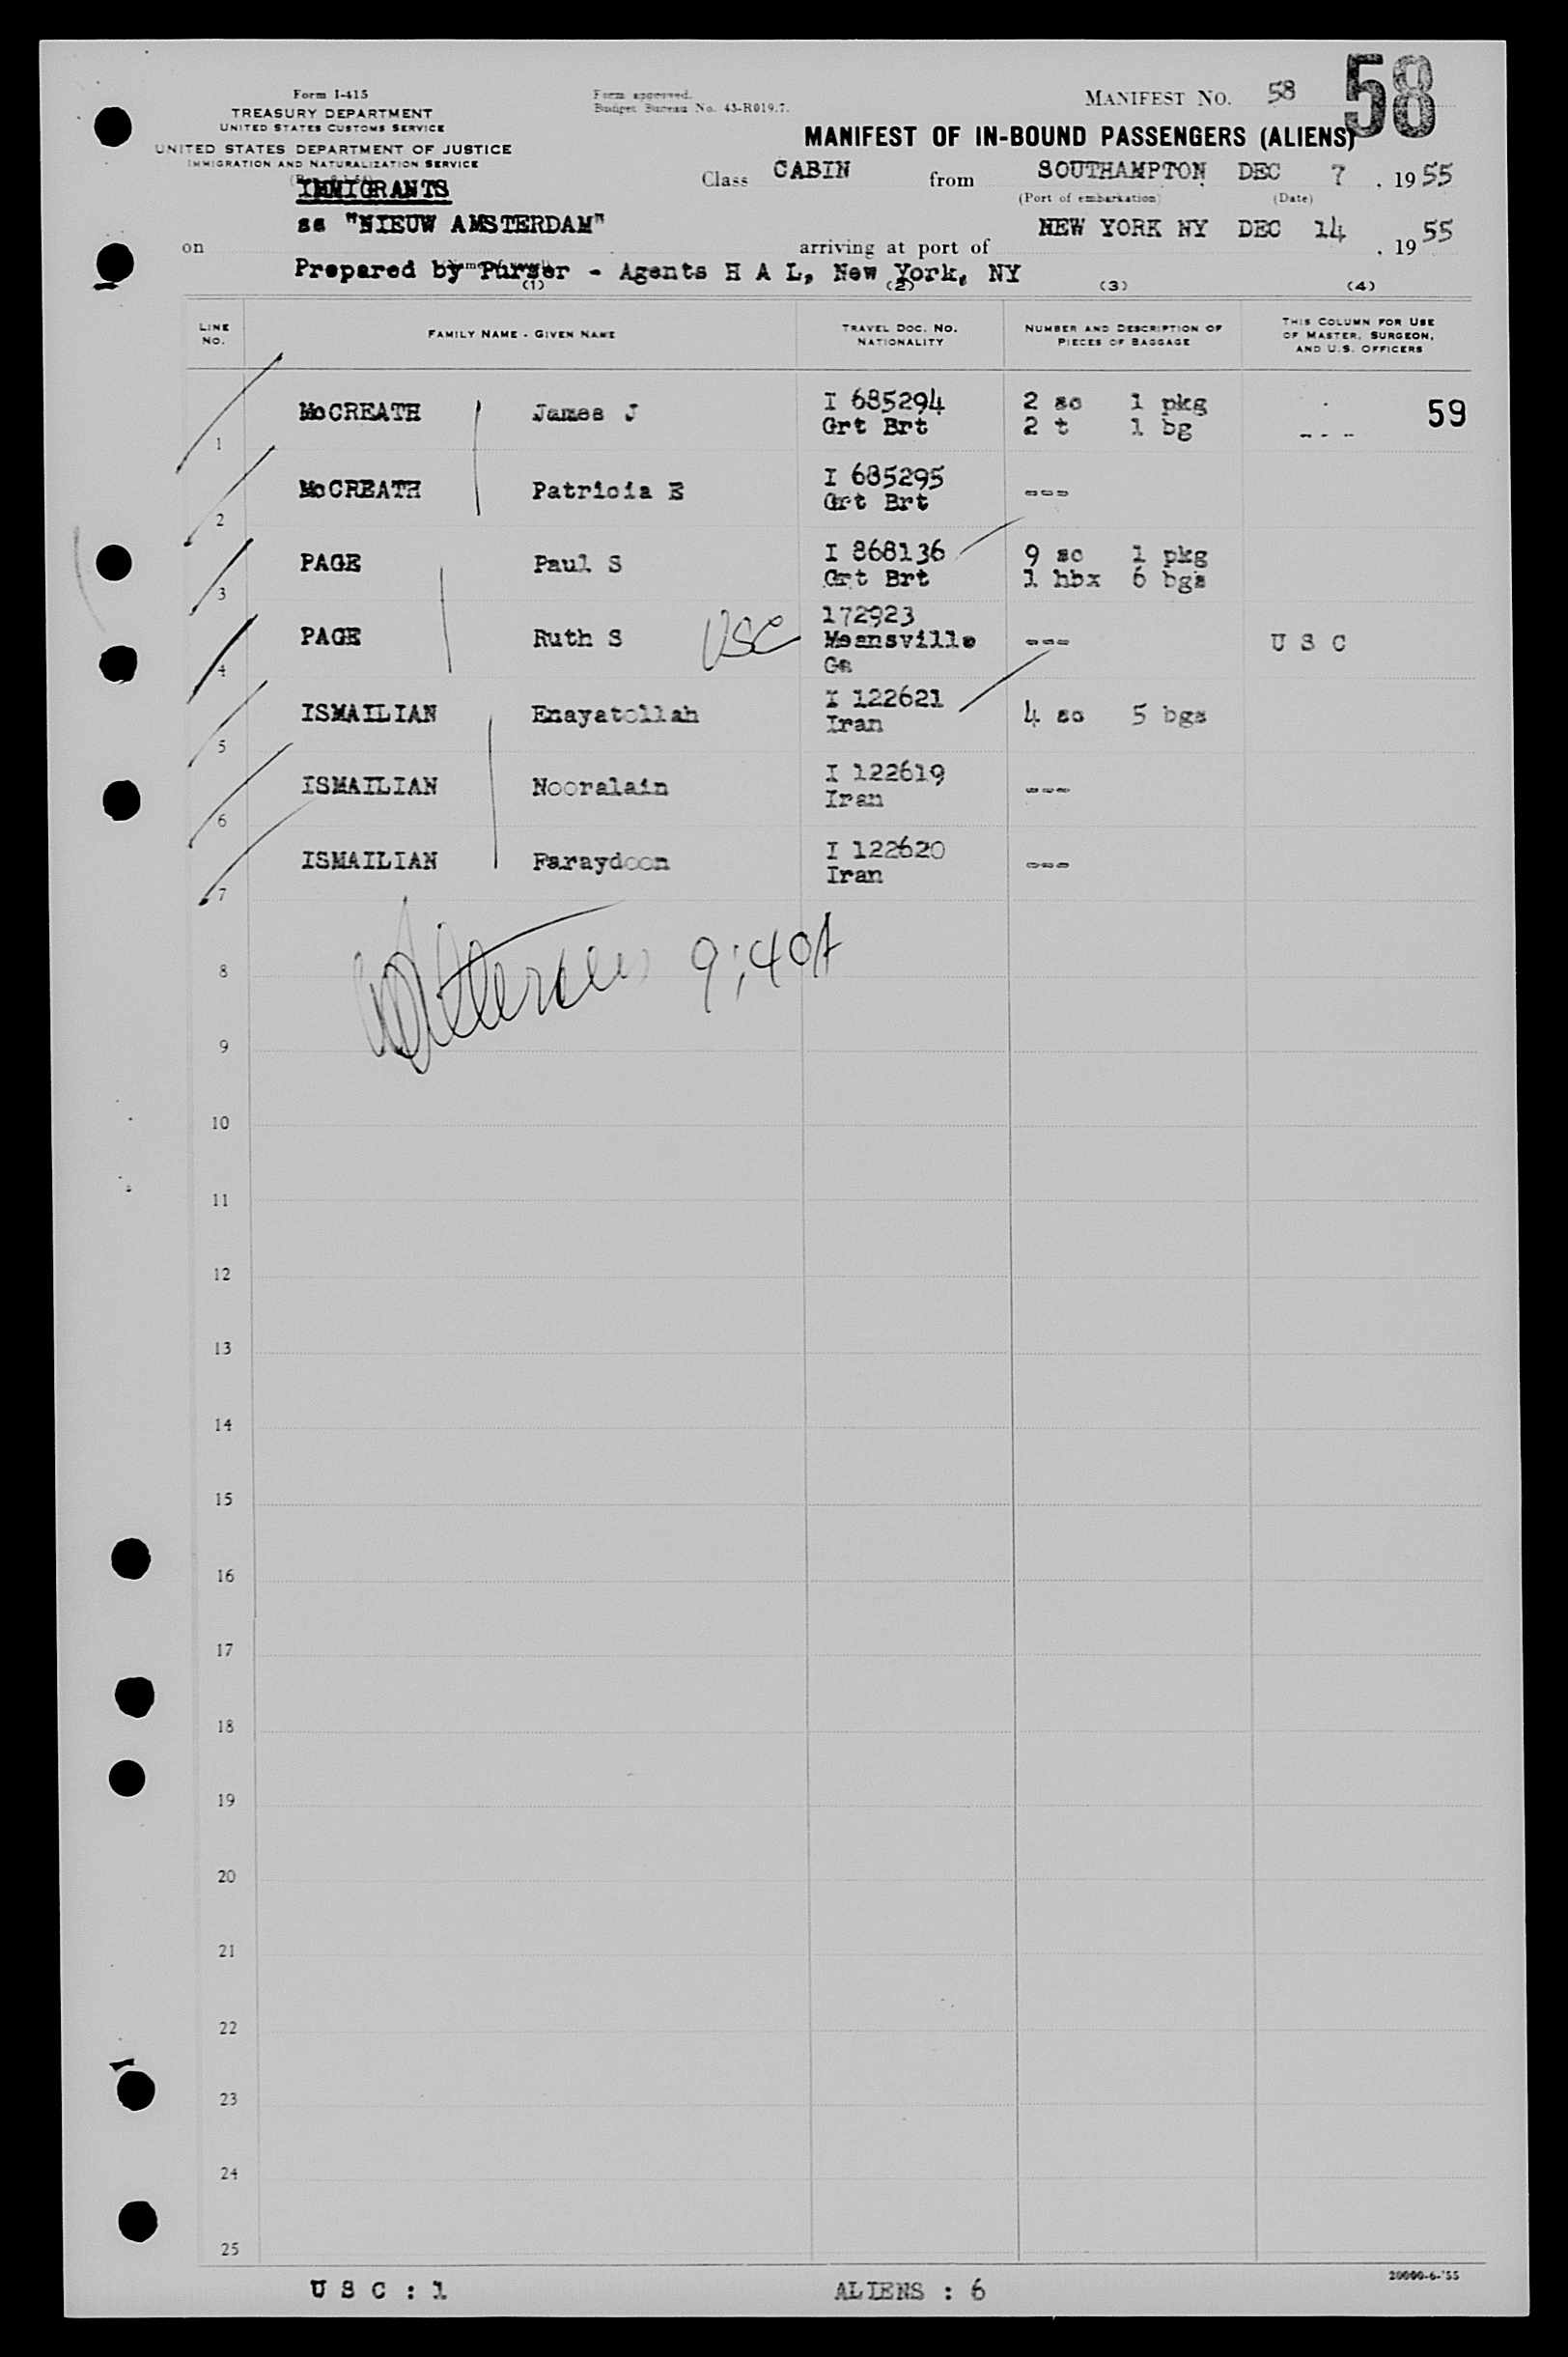 Form I-415
TREASURY DEPARTMENT
UNITED STATES CUSTOMS SERVICE
UNITED STATES DEPARTMENT OF JUSTICE
IMMIGRATION AND NATURALIZATION SERVICE
Form approved.
Budget Bureau No. 43-R019.7.
MANIFEST NO. 58
58
MANIFEST OF IN-BOUND PASSENGERS (ALIENS)
IMMIGRANTS
Class CABIN from SOUTHAMPTON DEC 7 , 1955
(Port of embarkation) (Date)
on ss "NIEUW AMSTERDAM"
arriving at port of NEW YORK NY DEC 14 , 1955
Prepared by Purser - Agents H A L, New York, NY
(1) (2) (3) (4)
LINE NO. FAMILY NAME - GIVEN NAME TRAVEL DOC. NO. NATIONALITY NUMBER AND DESCRIPTION OF PIECES OF BAGGAGE THIS COLUMN FOR USE OF MASTER, SURGEON, AND U.S. OFFICERS
1 McCREATH James J I 685294 2 sc 1 pkg 59
Grt Brt 2 t 1 bg - - -
2 McCREATH Patricia E I 685295 ---
Grt Brt
3 PAGE Paul S I 868136 9 sc 1 pkg
Grt Brt 1 hbx 6 bgs
4 PAGE Ruth S USC 172923 --- U S C
Meansville
Ga
5 ISMAILIAN Enayatollah I 122621 4 sc 5 bgs
Iran
6 ISMAILIAN Nooralain I 122619 ---
Iran
7 ISMAILIAN Faraydoon I 122620 ---
Iran
9:40A
8
9
10
11
12
13
14
15
16
17
18
19
20
21
22
23
24
25
20000-6-'55
U S C : 1 ALIENS : 6